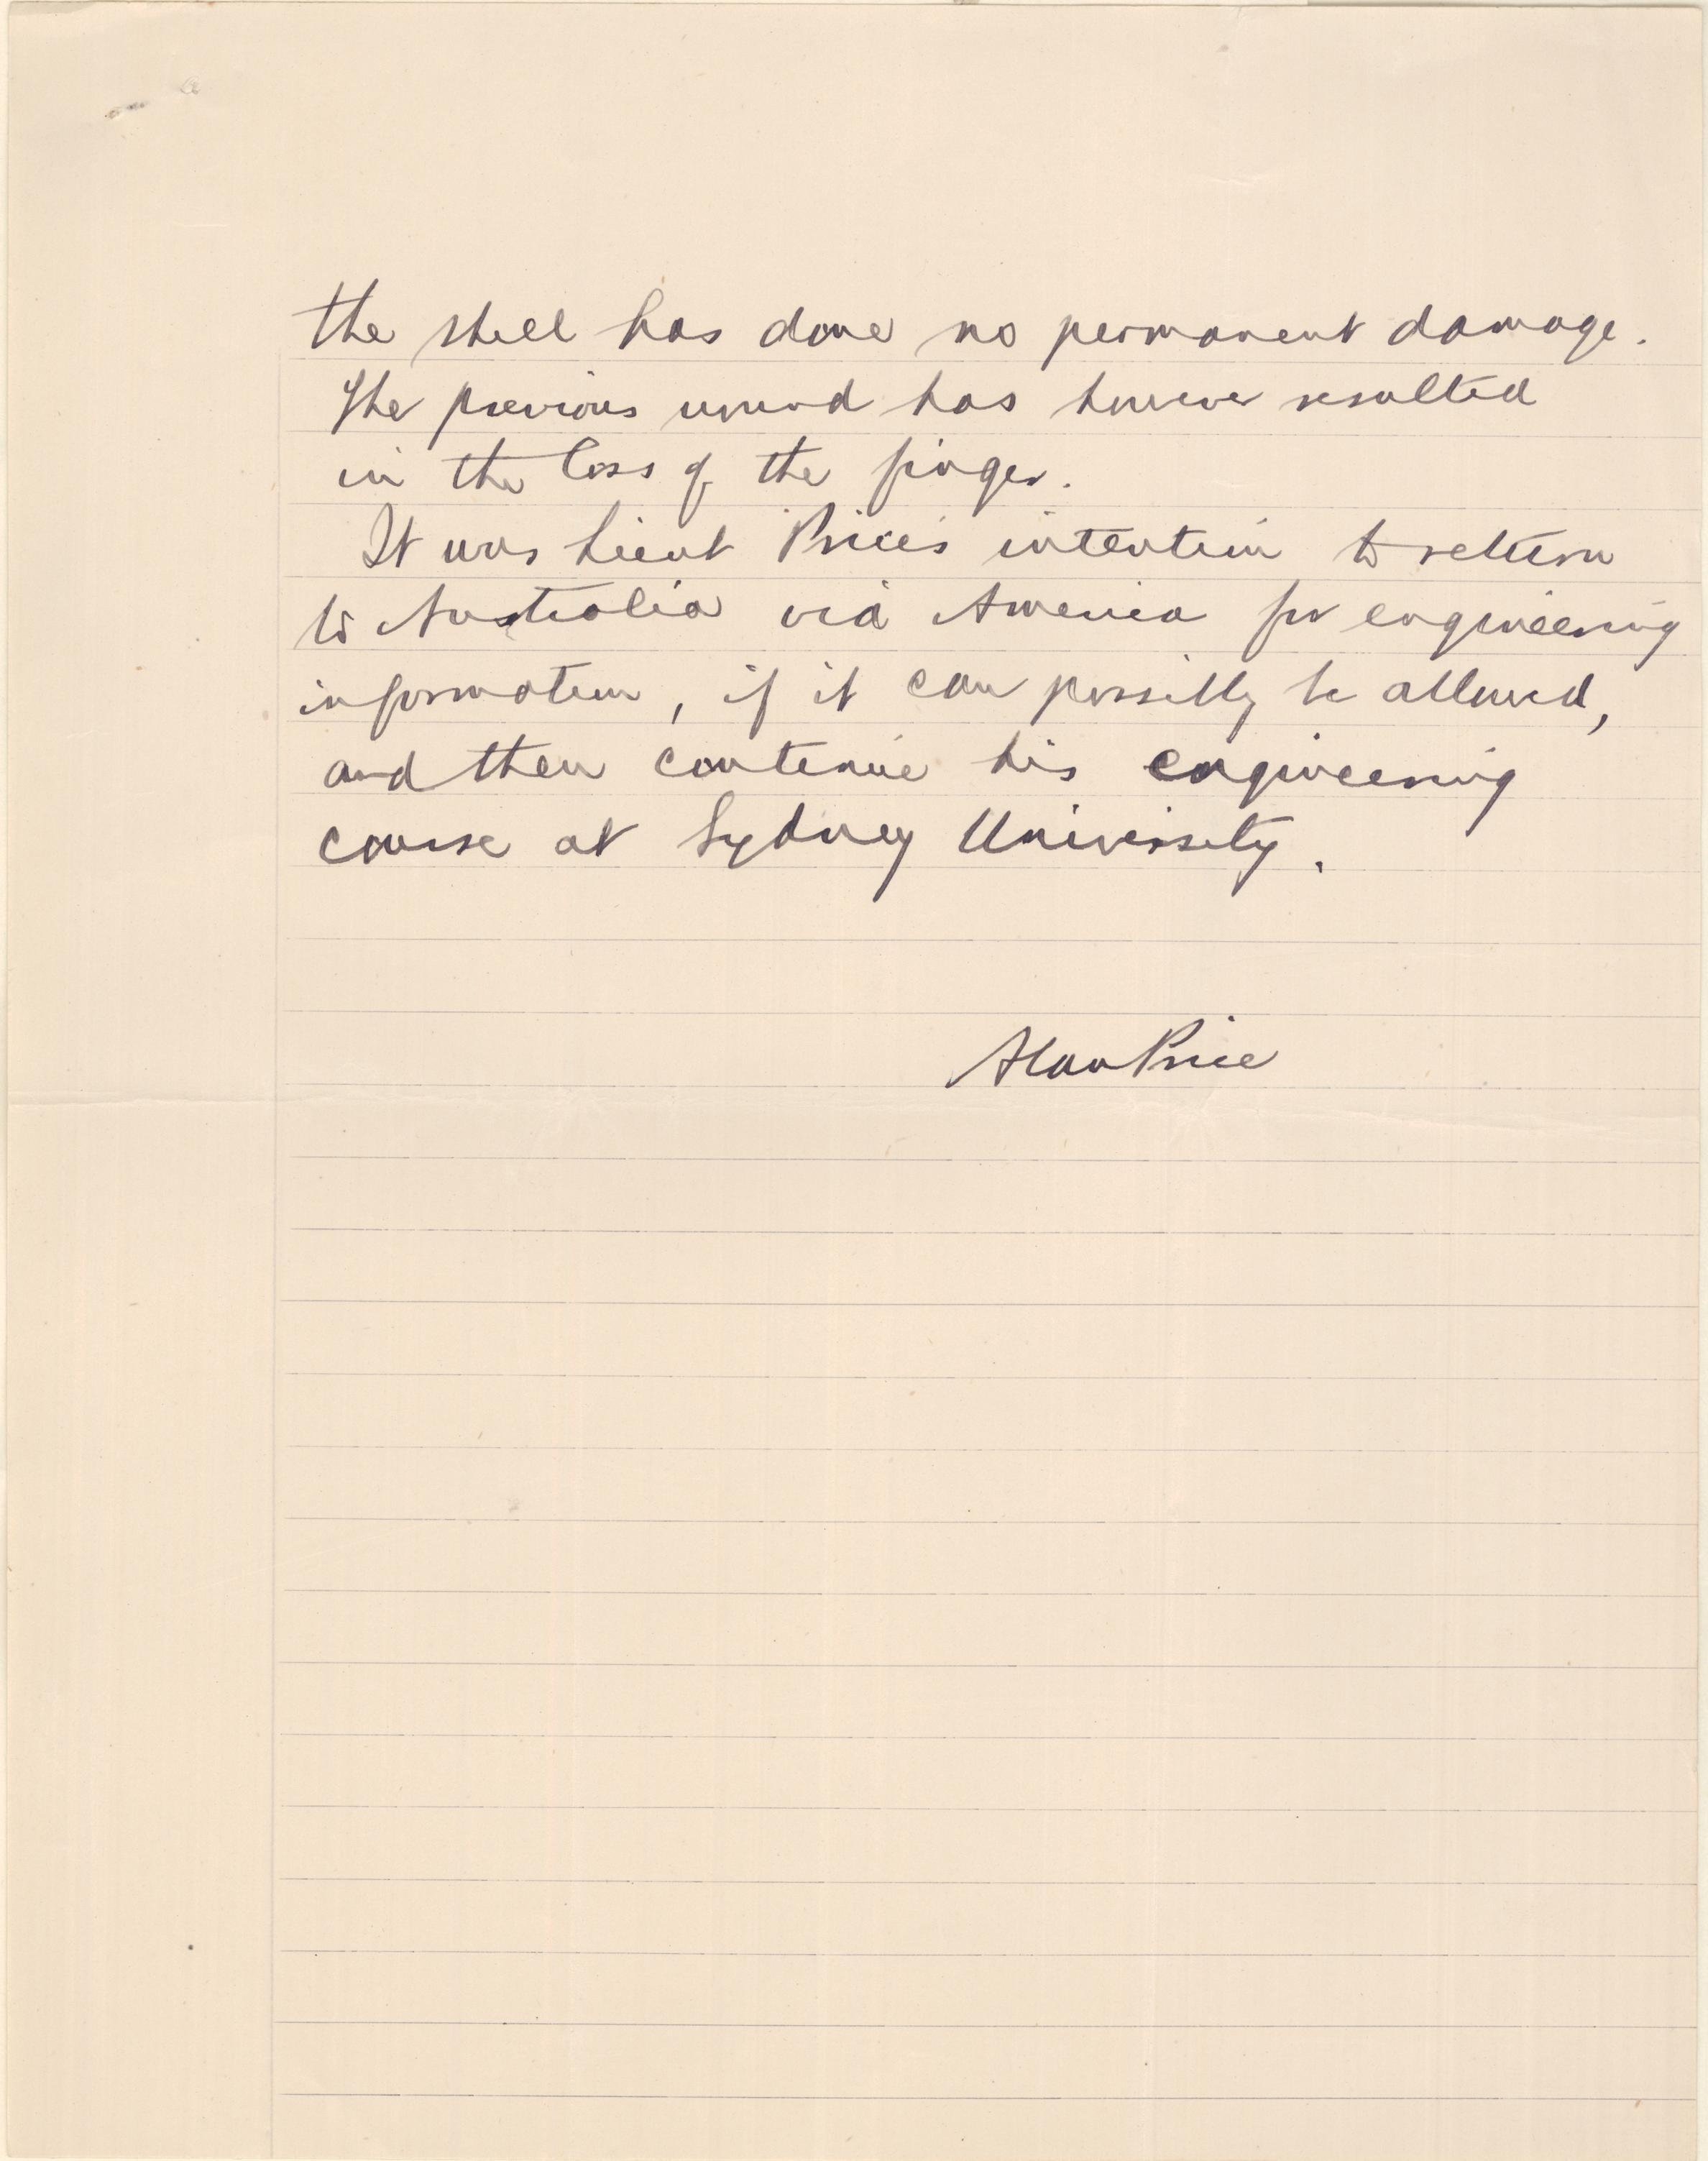 the shell has done no permanent damage.
The previous wound has however resulted
in the loss of the finger.
It was Lieut Price's intention to return
to Australia via America for engineering
information, if it can possibly be allowed,
and then continue his engineering
course at Sydney University.
Alan Price